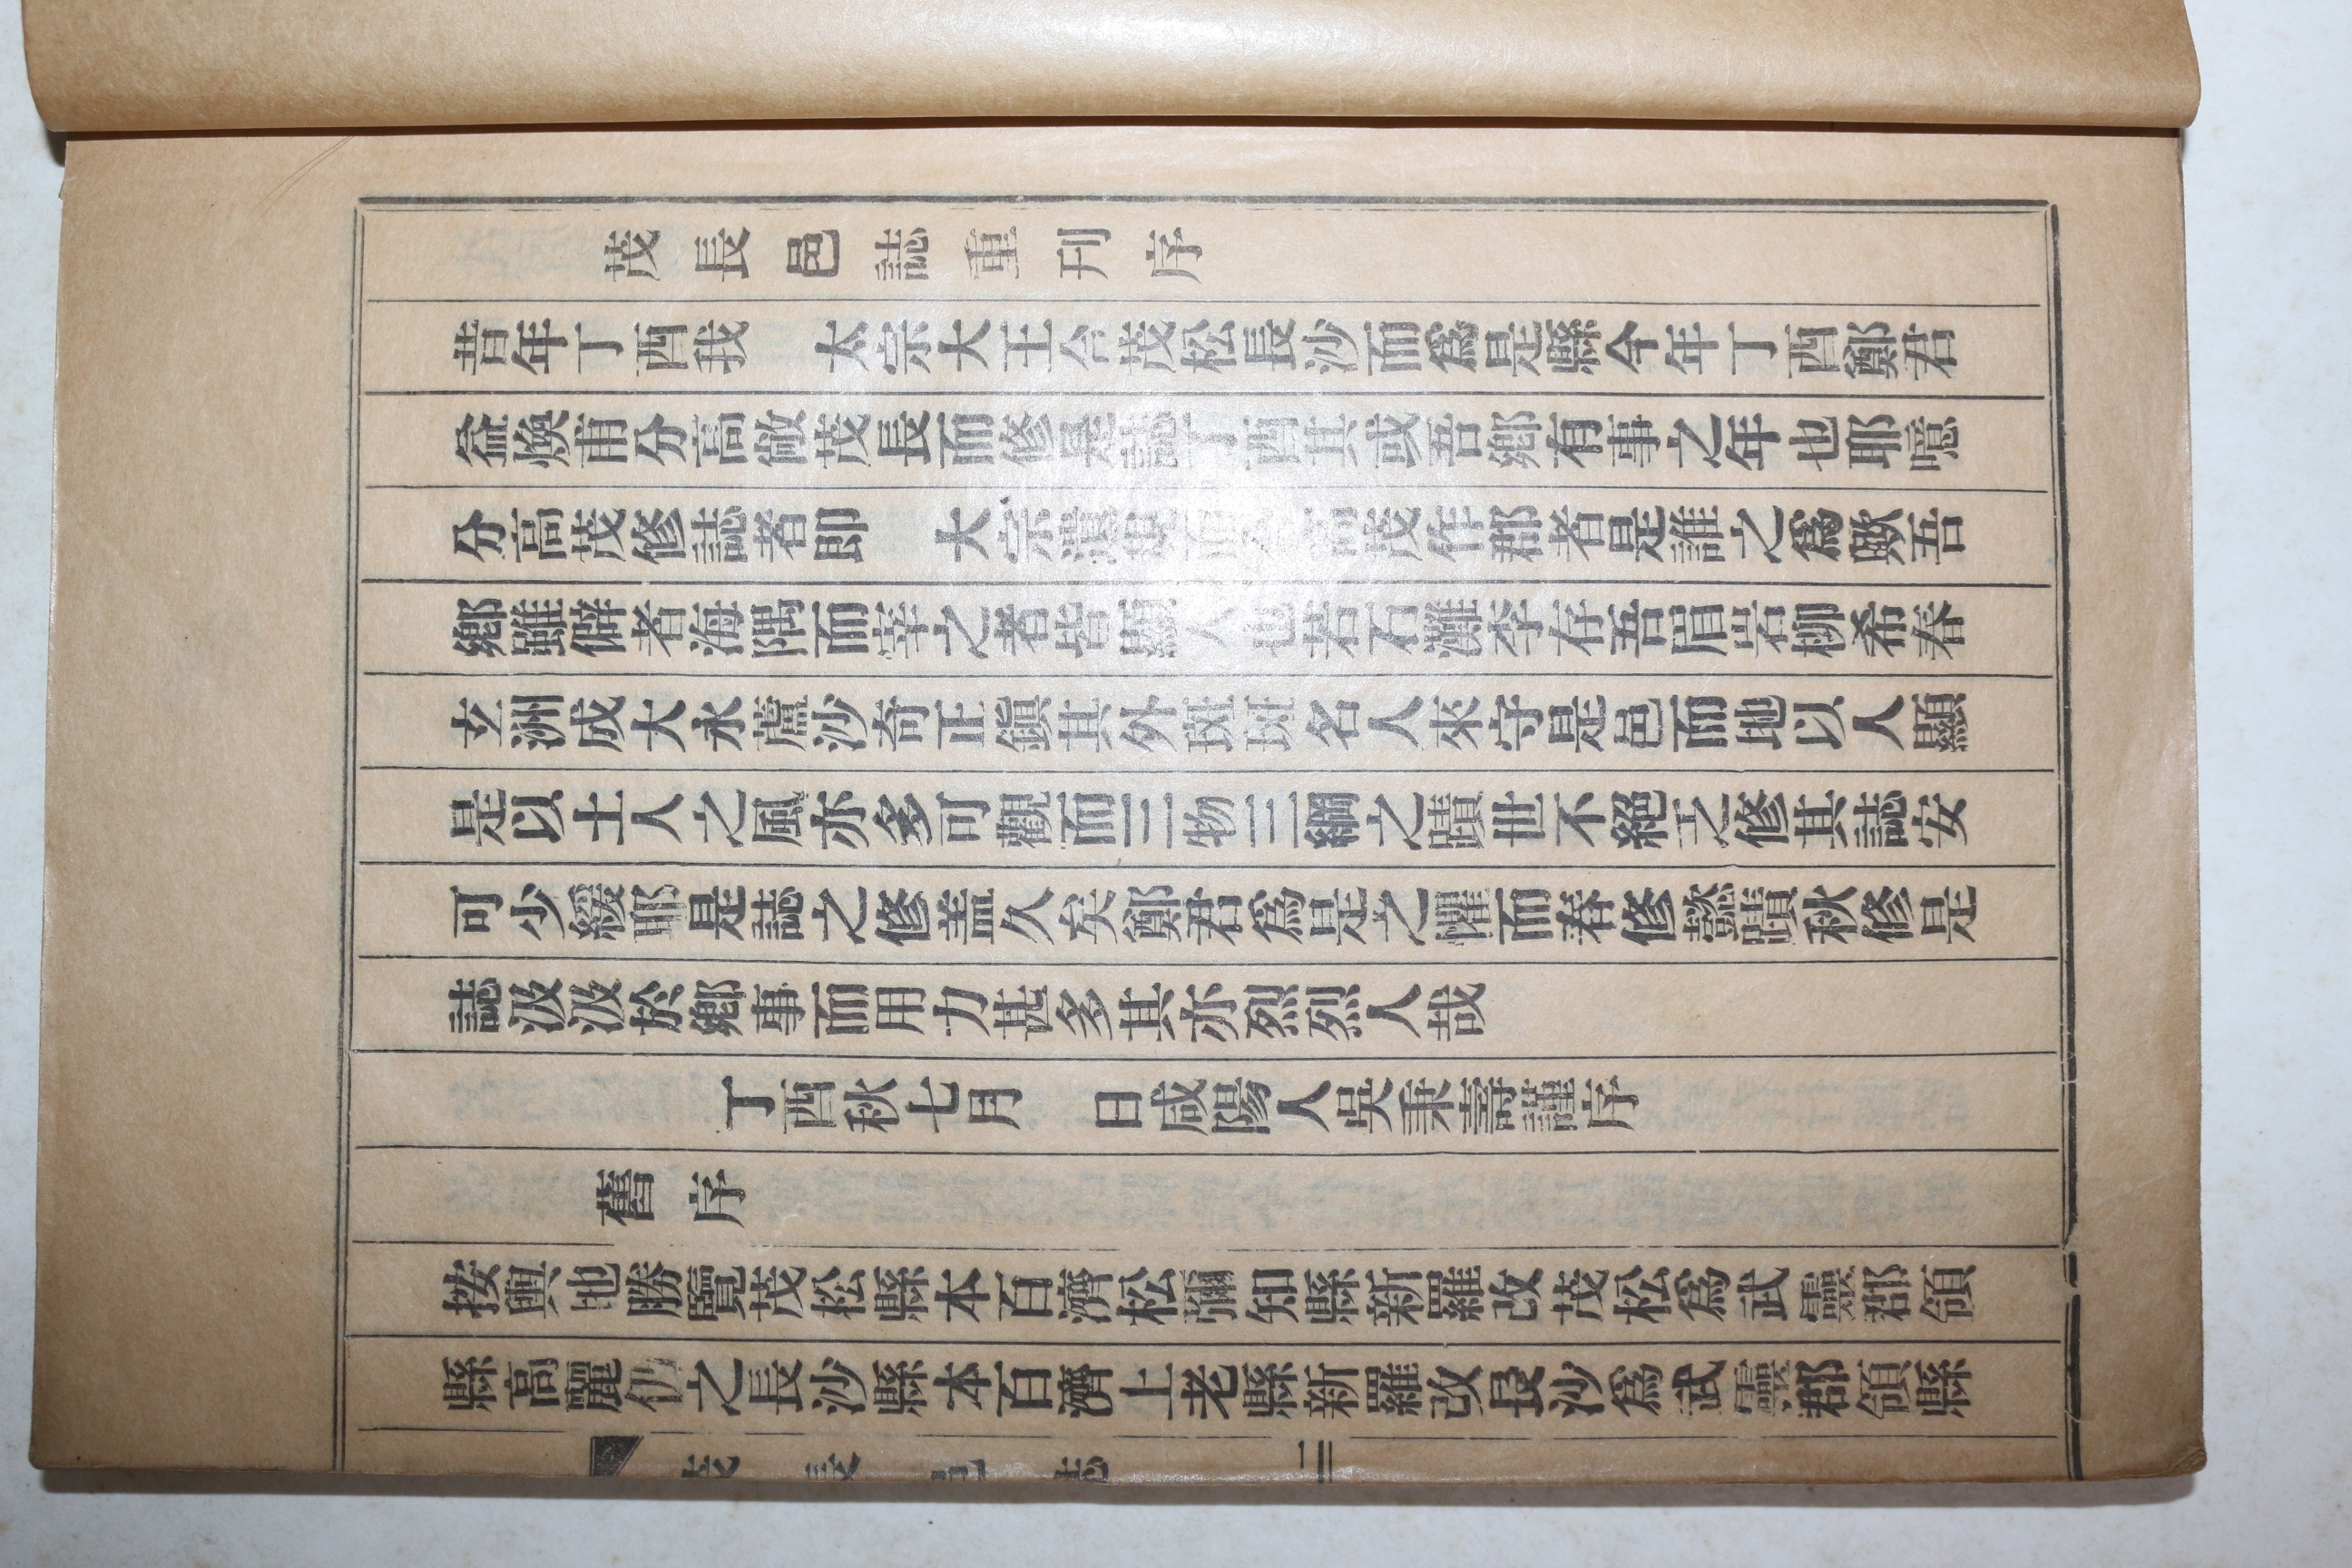 茂長邑誌重刊序
昔年丁酉我 太宗大王合茂松長沙而爲是縣今年丁酉鄭君
益煥甫分高敞茂長而修是誌丁酉其或吾鄉有事之年也耶噫
分高茂修誌者卽 大宗遺意茂作郡者是誰之爲歟吾
鄉雖僻者海隅而宰之者皆顯人也若石灘李存吾眉岩柳希春
玄洲成大永蘆沙奇正鎭其外斑斑名人來守是邑而地以人顯
是以土人之風亦多可觀而三物三綱之蹟世不絕之修其誌安
可少緩耶是誌之修盖久矣鄭君爲是之懼而春修懿蹟秋修是
誌汲汲於鄉事而用力甚多其亦烈烈人哉
丁酉秋七月 日咸陽人吳秉壽謹序
舊序
按輿地勝覽茂松縣本百濟松彌知縣新羅改茂松爲武靈郡領
縣高麗仍之長沙縣本百濟上老縣新羅改長沙爲武靈郡領縣
茂長邑誌